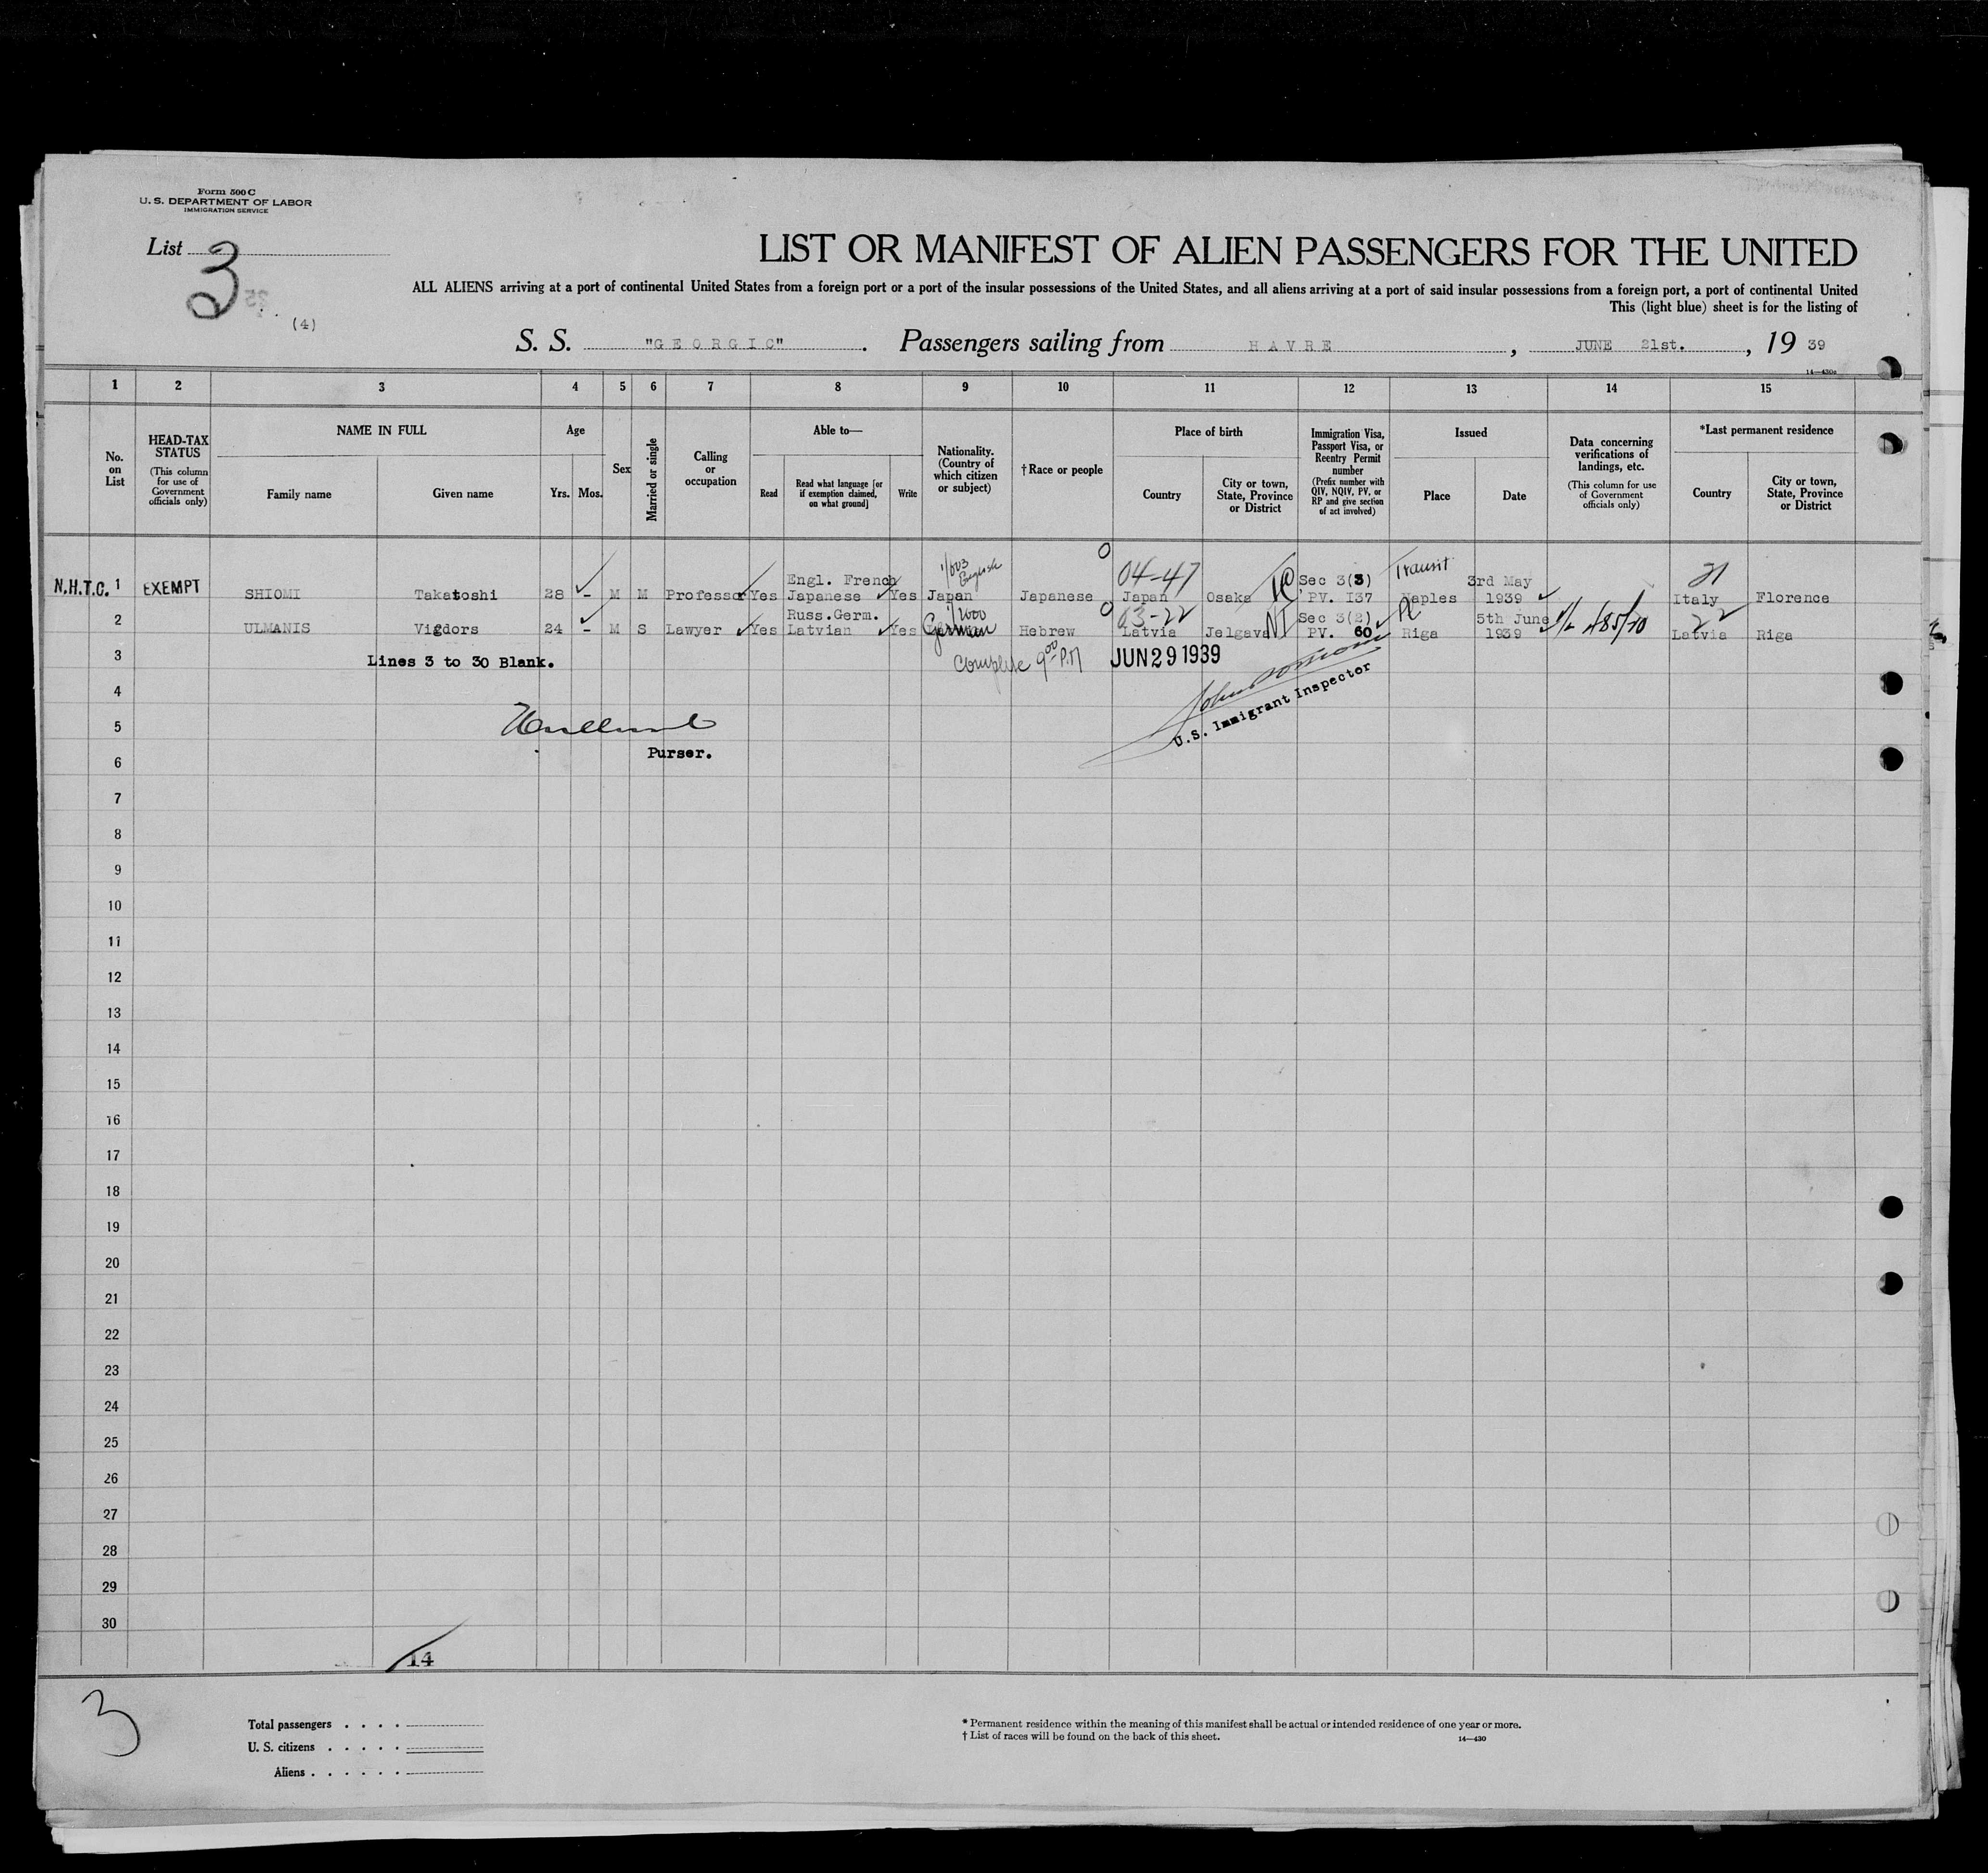 Form 500 C
U. S. DEPARTMENT OF LABOR
IMMIGRATION SERVICE
List 3
(4)
LIST OR MANIFEST OF ALIEN PASSENGERS FOR THE UNITED
ALL ALIENS arriving at a port of continental United States from a foreign port or a port of the insular possessions of the United States, and all aliens arriving at a port of said insular possessions from a foreign port, a port of continental United
This (light blue) sheet is for the listing of
S. S. "GEORGIC". Passengers sailing from HAVRE, JUNE 21st., 19 39
14—430a
1 2 3 4 5 6 7 8 9 10 11 12 13 14 15
No. on List
HEAD-TAX STATUS
(This column for use of Government officials only)
NAME IN FULL
Family name
Given name
Age
Yrs. Mos.
Sex
Married or single
Calling or occupation
Able to—
Read
Read what language [or if exemption claimed, on what ground]
Write
Nationality. (Country of which citizen or subject)
†Race or people
Place of birth
Country
City or town, State, Province or District
Immigration Visa, Passport Visa, or Reentry Permit number
(Prefix number with QIV, NQIV, PV, or RP and give section of act involved)
Issued
Place
Date
Data concerning verifications of landings, etc.
(This column for use of Government officials only)
*Last permanent residence
Country
City or town, State, Province or District
1/003 English 04-47 Transit 21
Engl. French Sec 3(3) 3rd May
N.H.T.C. 1 EXEMPT SHIOMI Takatoshi 28 - M M Professor Yes Japanese Yes Japan Japanese Japan Osaka PV. I37 Naples 1939 Italy Florence
Russ.Germ. 1/2000 03-22 Sec 3(2) Pl 5th June 22
2 ULMANIS Vigdors 24 - M S Lawyer Yes Latvian Yes German Hebrew Latvia Jelgava NI PV. 60 Riga 1939 Latvia Riga
3 Lines 3 to 30 Blank. Complete 9 00 P.M JUN 29 1939
4
U.S. Immigrant Inspector
5
Purser.
6
7
8
9
10
11
12
13
14
15
16
17
18
19
20
21
22
23
24
25
26
27
28
29
30
14
3
Total passengers
U. S. citizens
Aliens
* Permanent residence within the meaning of this manifest shall be actual or intended residence of one year or more.
† List of races will be found on the back of this sheet.
14—430